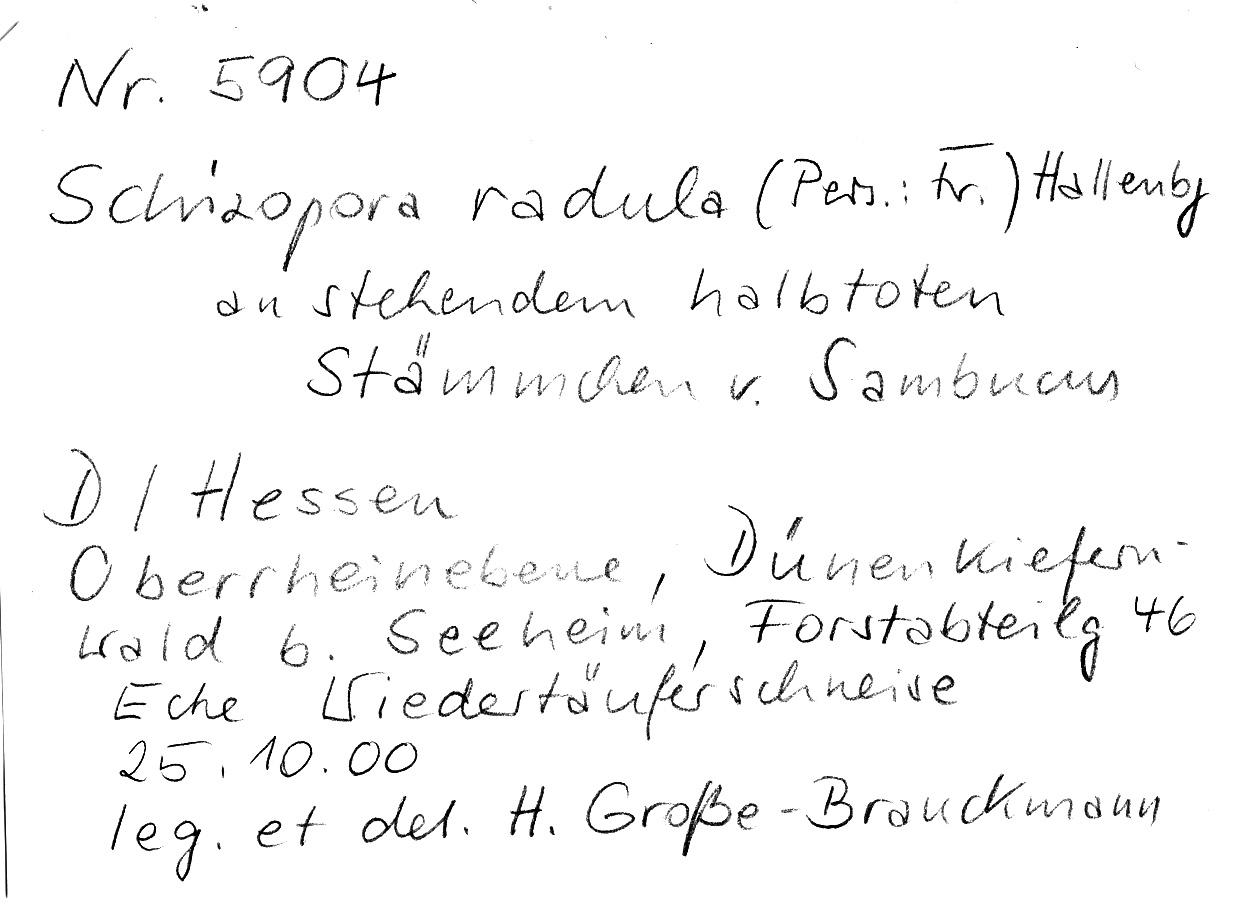 Nr. 5904
Schizopora radula (Pers.: Fr.) Hallenbg
an stehendem halbtoten
Stämmchen v. Sambucus
D / Hessen
Oberrheinebene, Dünenkiefern-
wald b. Seeheim, Forstabteilg 46
Ecke Wiedertäuferschneise
25.10.00
leg. et det. H. Große-Brauckmann